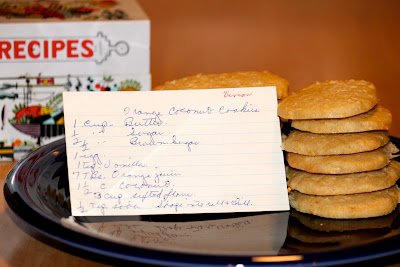 RECIPES
Vernon
Orange Coconut Cookies
1 Cup Butter
1/2 " " Sugar
2 1/2 " Brown Sugar
1 egg
1 tsp Vanilla
7 Tbs. Orange juice
1 1/2 c Coconut
3 cup sifted flour
1/2 Tsp Soda Shape into roll & chill.